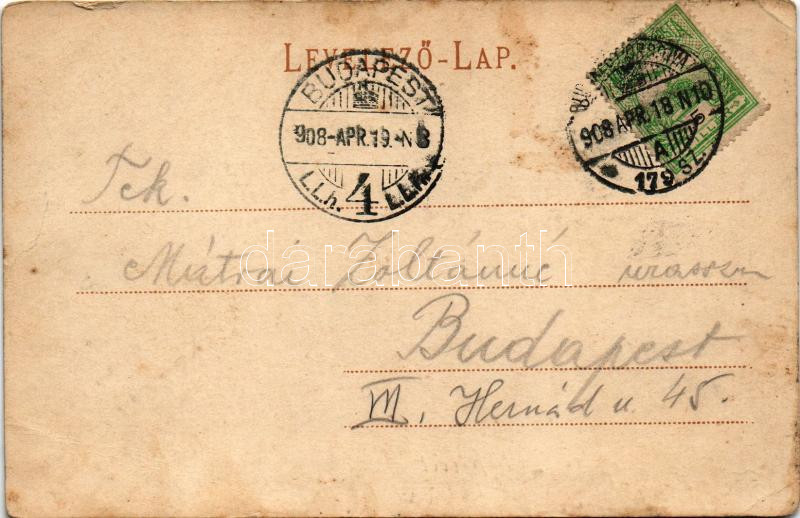 LEVELEZŐ-LAP.
BUDAPEST
908-APR.19.-N8
4
908 APR.18 N10
A
179 SZ.
Tek.
Mátrai Zoltánné urasszon
darabanth
Budapest
VII. Hernád u. 45.